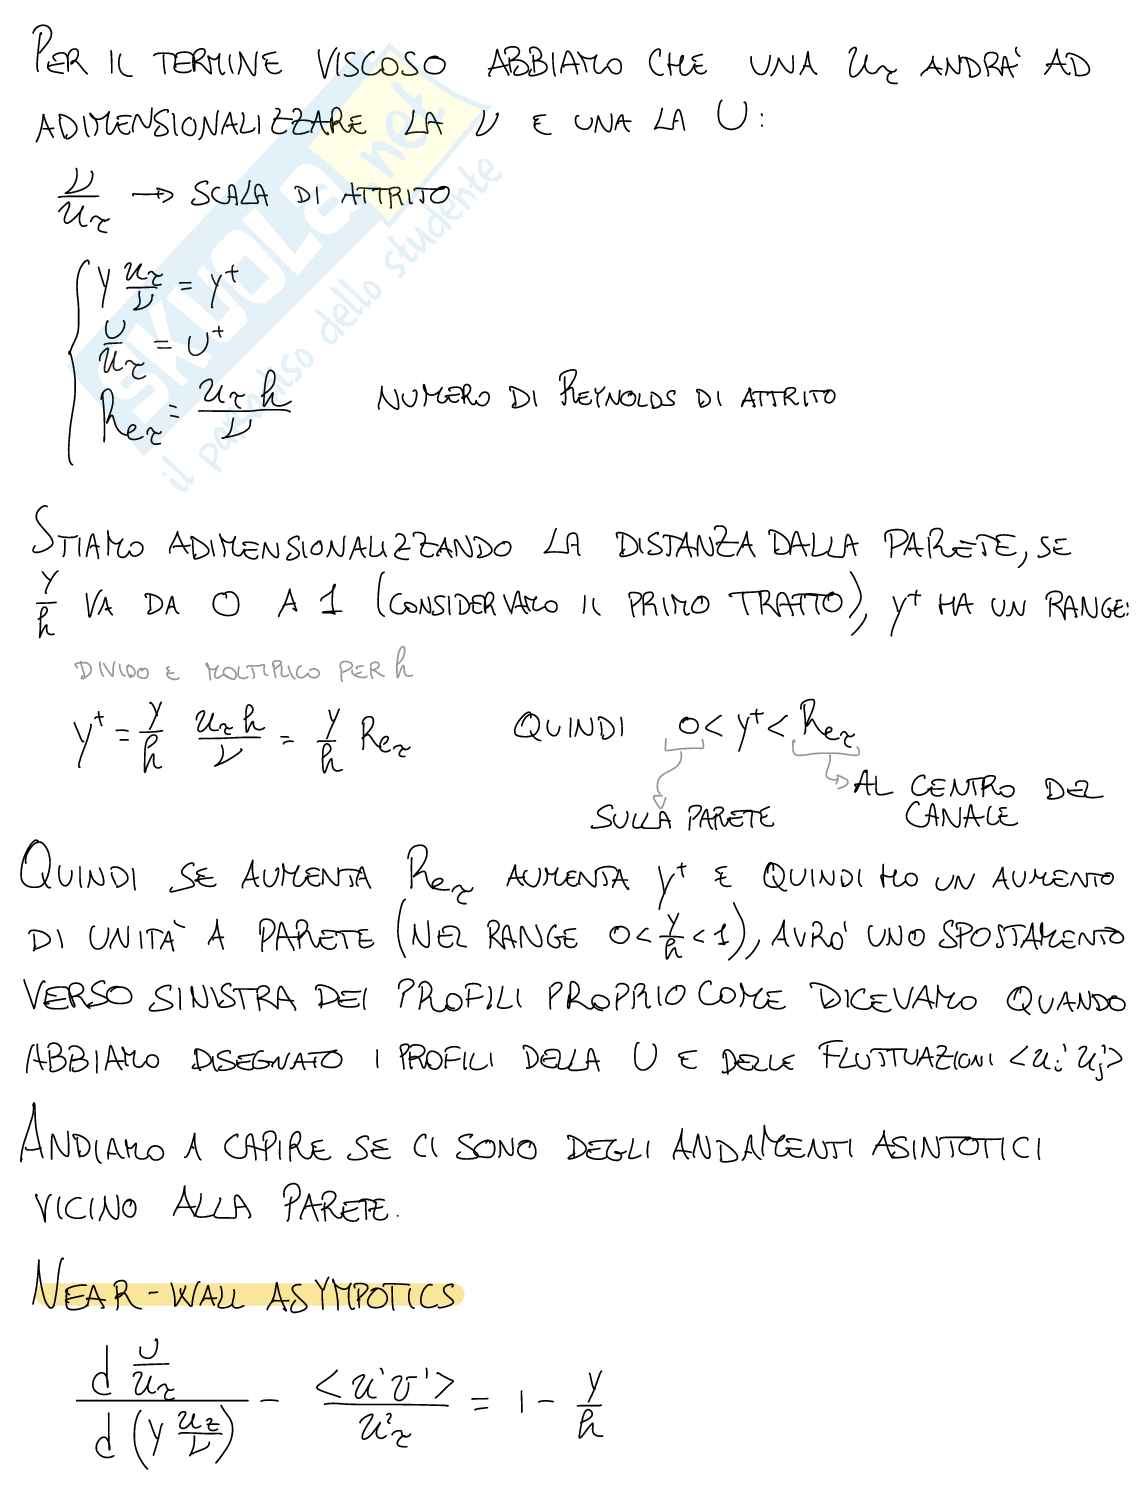 PER IL TERMINE VISCOSO ABBIAMO CHE UNA u_τ ANDRA' AD
ADIMENSIONALIZZARE LA ν E UNA LA U:
ν/u_τ → SCALA DI ATTRITO
y u_τ/ν = y⁺
U/u_τ = U⁺
Re_τ = u_τ h/ν NUMERO DI REYNOLDS DI ATTRITO
STIAMO ADIMENSIONALIZZANDO LA DISTANZA DALLA PARETE, SE
y/h VA DA 0 A 1 (CONSIDERIAMO IL PRIMO TRATTO), y⁺ HA UN RANGE:
DIVIDO E MOLTIPLICO PER h
y⁺ = y/h u_τ h/ν = y/h Re_τ QUINDI 0 < y⁺ < Re_τ
SULLA PARETE
AL CENTRO DEL
CANALE
QUINDI SE AUMENTA Re_τ AUMENTA y⁺ E QUINDI HO UN AUMENTO
DI UNITÀ A PARETE (NEL RANGE 0 < y/h < 1), AVRO' UNO SPOSTAMENTO
VERSO SINISTRA DEI PROFILI PROPRIO COME DICEVAMO QUANDO
ABBIAMO DISEGNATO I PROFILI DELLA U E DELLE FLUTTUAZIONI <u_i' u_j'>
ANDIAMO A CAPIRE SE CI SONO DEGLI ANDAMENTI ASINTOTICI
VICINO ALLA PARETE.
NEAR-WALL ASYMPOTICS
d U/u_τ / d (y u_τ/ν) - <u'v'>/u²_τ = 1 - y/h
SKUOLA.net
il paradiso dello studente